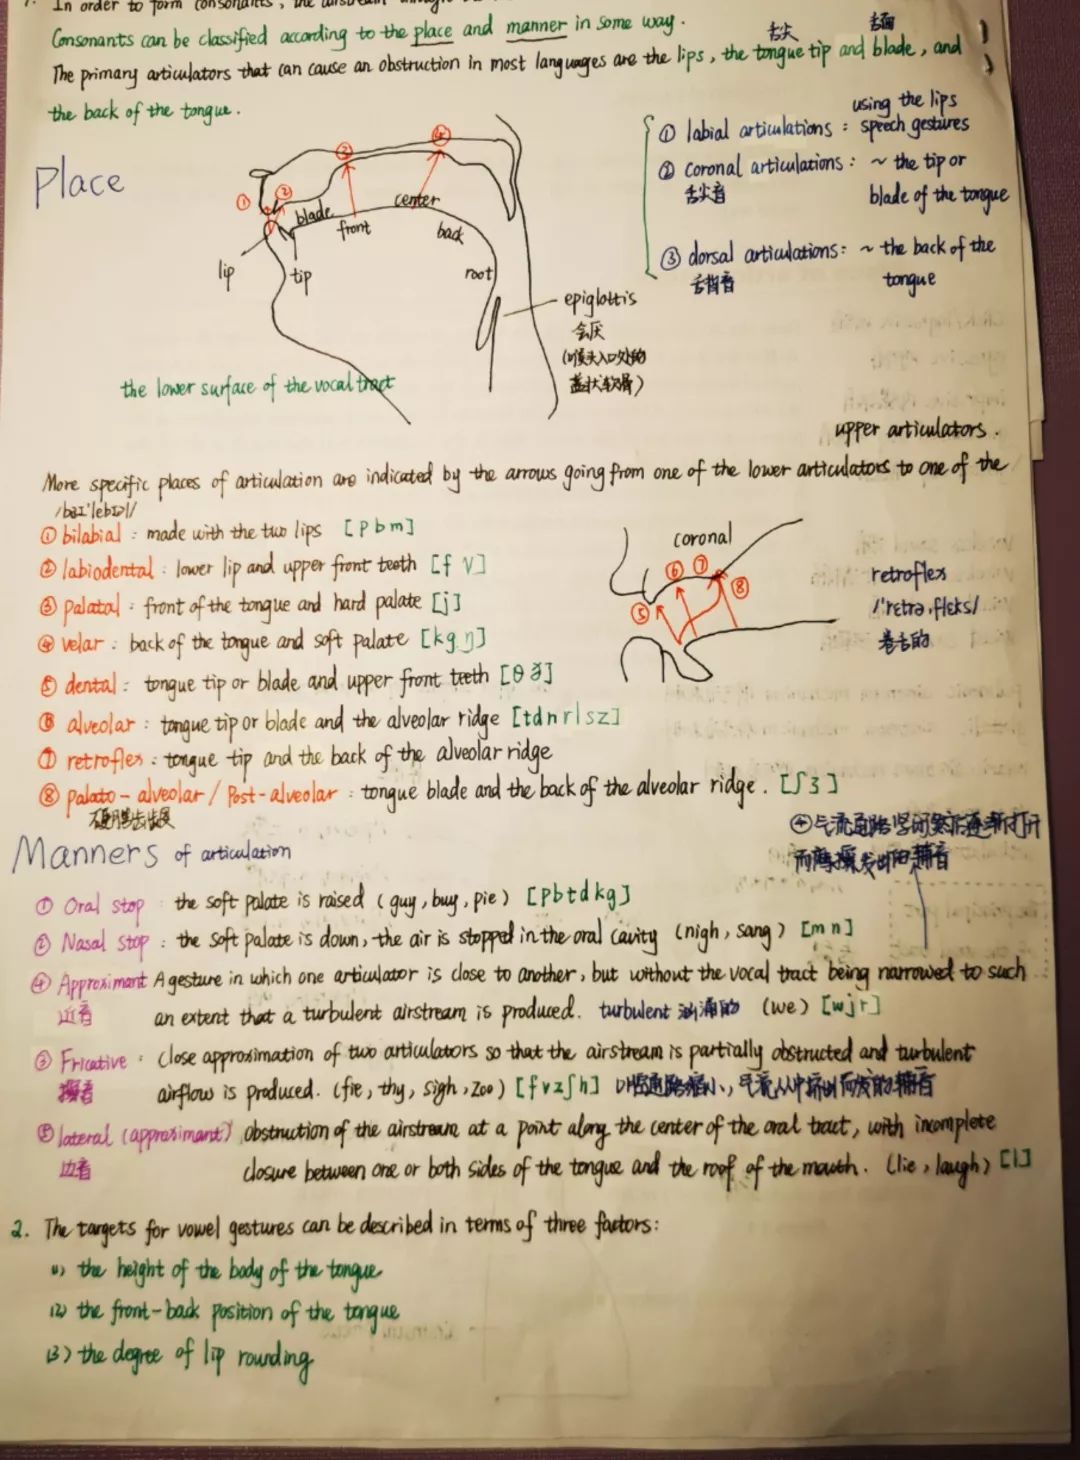 In order to form consonants, the airstream through
Consonants can be classified according to the place and manner in some way.
舌尖
舌面
The primary articulators that can cause an obstruction in most languages are the lips, the tongue tip and blade, and
the back of the tongue.
Place
using the lips
① labial articulations : speech gestures
② coronal articulations : ~ the tip or
舌尖音
blade of the tongue
③ dorsal articulations: ~ the back of the
舌背音
tongue
① ② ③ ④
blade
front
center
back
root
lip
tip
epiglottis
会厌
(喉头入口处的
盖状软骨)
the lower surface of the vocal tract
upper articulators.
More specific places of articulation are indicated by the arrows going from one of the lower articulators to one of the
/baɪ'lebɪəl/
① bilabial : made with the two lips [p b m]
② labiodental : lower lip and upper front teeth [f v]
③ palatal : front of the tongue and hard palate [j]
④ velar : back of the tongue and soft palate [k g ŋ]
⑤ dental : tongue tip or blade and upper front teeth [θ ð]
⑥ alveolar : tongue tip or blade and the alveolar ridge [t d n r l s z]
⑦ retroflex : tongue tip and the back of the alveolar ridge
⑧ palato-alveolar / Post-alveolar : tongue blade and the back of the alveolar ridge. [ʃ ʒ]
coronal
⑤ ⑥ ⑦ ⑧
retroflex
/'retrə,fleks/
卷舌的
Manners of articulation
① Oral stop : the soft palate is raised (guy, buy, pie) [p b t d k g]
② Nasal stop : the soft palate is down, the air is stopped in the oral cavity (nigh, sang) [m n]
④ Approximant A gesture in which one articulator is close to another, but without the vocal tract being narrowed to such
近音
an extent that a turbulent airstream is produced. turbulent 汹涌的 (we) [w j r]
③ Fricative : close approximation of two articulators so that the airstream is partially obstructed and turbulent
擦音
airflow is produced. (fie, thy, sigh, zoo) [f v z ʃ h] 口腔通路缩小,气流从中挤出而发的辅音
⑤ lateral (approximant) obstruction of the airstream at a point along the center of the oral tract, with incomplete
边音
closure between one or both sides of the tongue and the roof of the mouth. (lie, laugh) [l]
2. The targets for vowel gestures can be described in terms of three factors:
(1) the height of the body of the tongue
(2) the front-back position of the tongue
(3) the degree of lip rounding